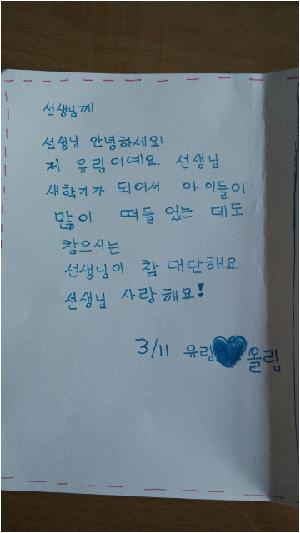 선생님께
선생님 안녕하세요!
저 유림이예요. 선생님
새학기가 되어서 아이들이
많이 떠들 있는 데도
참으시는
선생님이 참 대단해요.
선생님 사랑해요!
3/11 유림♥올림